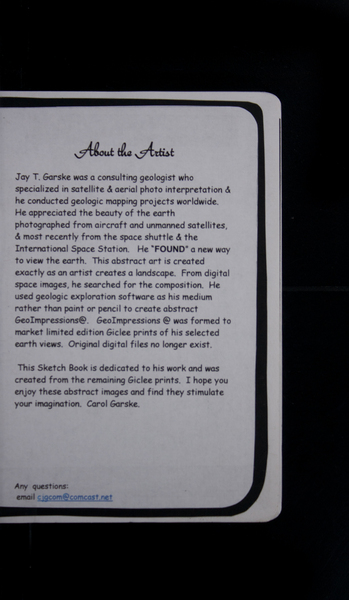 About the Artist
Jay T. Garske was a consulting geologist who
specialized in satellite & aerial photo interpretation &
he conducted geologic mapping projects worldwide.
He appreciated the beauty of the earth
photographed from aircraft and unmanned satellites,
& most recently from the space shuttle & the
International Space Station. He "FOUND" a new way
to view the earth. This abstract art is created
exactly as an artist creates a landscape. From digital
space images, he searched for the composition. He
used geologic exploration software as his medium
rather than paint or pencil to create abstract
GeoImpressions@. GeoImpressions @ was formed to
market limited edition Giclee prints of his selected
earth views. Original digital files no longer exist.
This Sketch Book is dedicated to his work and was
created from the remaining Giclee prints. I hope you
enjoy these abstract images and find they stimulate
your imagination. Carol Garske.
Any questions:
email cjgcom@comcast.net